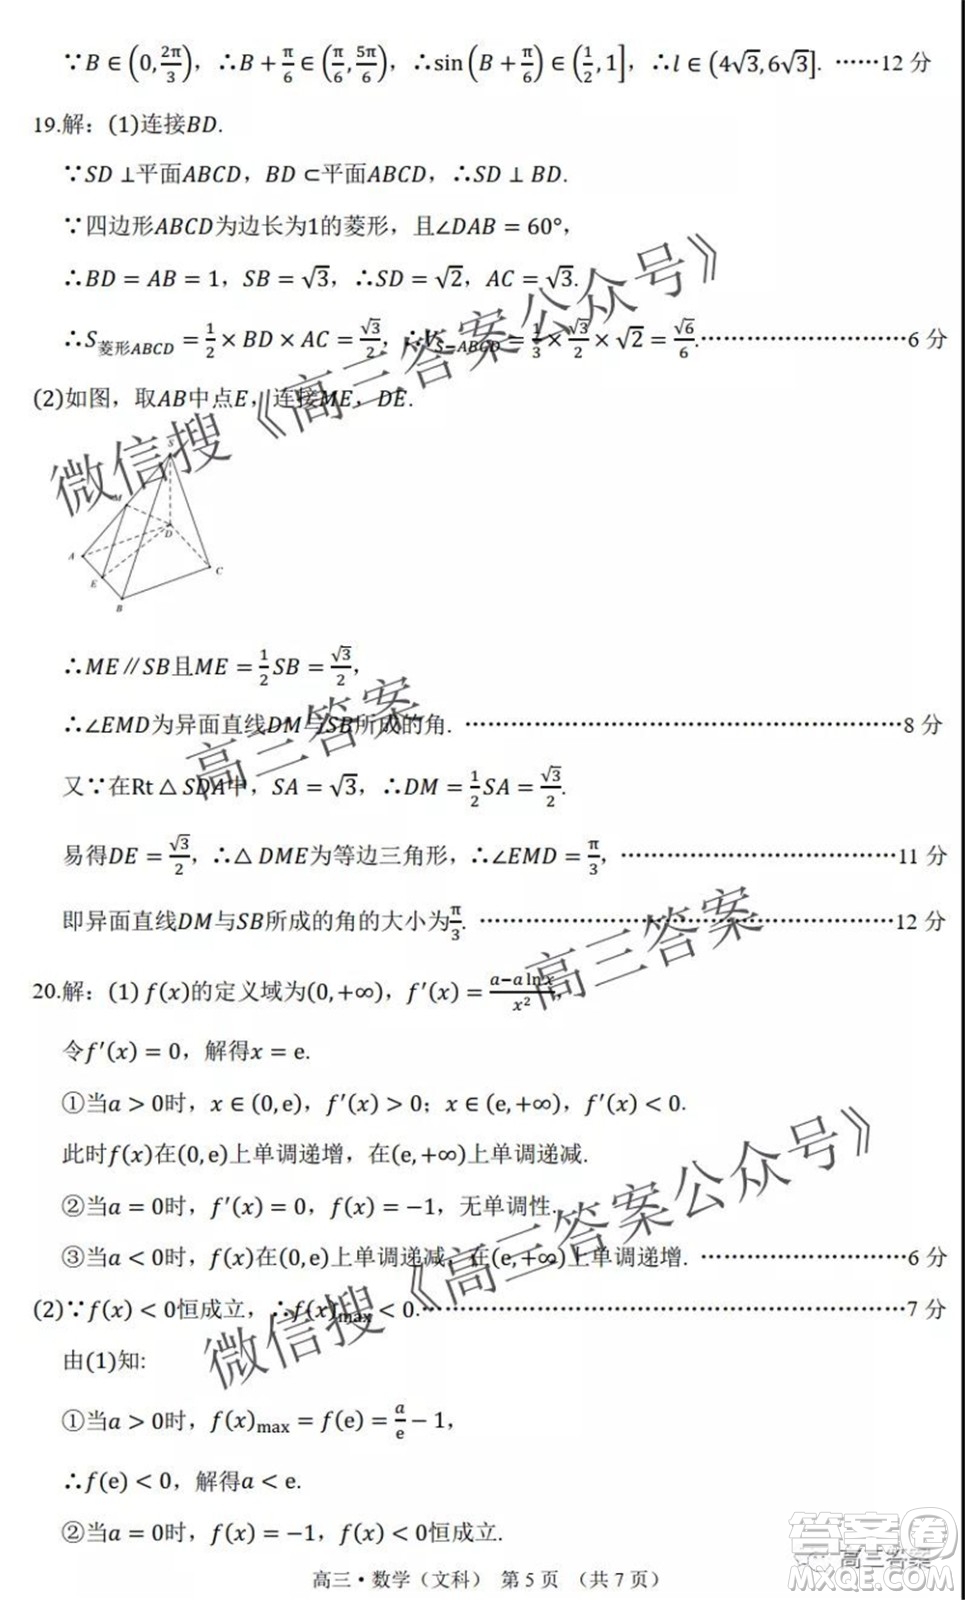 ∵B∈(0,2π/3)，∴B+π/6∈(π/6,5π/6)，∴sin(B+π/6)∈(1/2,1]，∴l∈(4√3,6√3]. ……12 分
19.解：(1)连接BD.
∵SD⊥平面ABCD，BD⊂平面ABCD，∴SD⊥BD.
∵四边形ABCD为边长为1的菱形，且∠DAB=60°，
∴BD=AB=1，SB=√3，∴SD=√2，AC=√3.
∴S菱形ABCD=1/2×BD×AC=√3/2，∴V_S−ABCD=1/3×√3/2×√2=√6/6.……………………6 分
(2)如图，取AB中点E，连接ME，DE.
S
M
D
A
E
C
B
∴ME∥SB且ME=1/2SB=√3/2，
∴∠EMD为异面直线DM与SB所成的角. ……………………8 分
又∵在Rt△SDA中，SA=√3，∴DM=1/2SA=√3/2.
易得DE=√3/2，∴△DME为等边三角形，∴∠EMD=π/3，……………………11 分
即异面直线DM与SB所成的角的大小为π/3. ……………………12 分
20.解：(1) f(x)的定义域为(0,+∞)，f′(x)=(a−a ln x)/x²，
令f′(x)=0，解得x=e.
①当a>0时，x∈(0,e)，f′(x)>0；x∈(e,+∞)，f′(x)<0.
此时f(x)在(0,e)上单调递增，在(e,+∞)上单调递减.
②当a=0时，f′(x)=0，f(x)=−1，无单调性.
③当a<0时，f(x)在(0,e)上单调递减，在(e,+∞)上单调递增. ……………………6 分
(2)∵f(x)<0恒成立，∴f(x)max<0.……………………7 分
由(1)知:
①当a>0时，f(x)max=f(e)=a/e−1，
∴f(e)<0，解得a<e.
②当a=0时，f(x)=−1，f(x)<0恒成立.
高三·数学（文科） 第 5 页 （共 7 页）
微信搜《高三答案公众号》
高三答案
高三答案
微信搜《高三答案公众号》
高三答案
答案圈
MXQE.COM